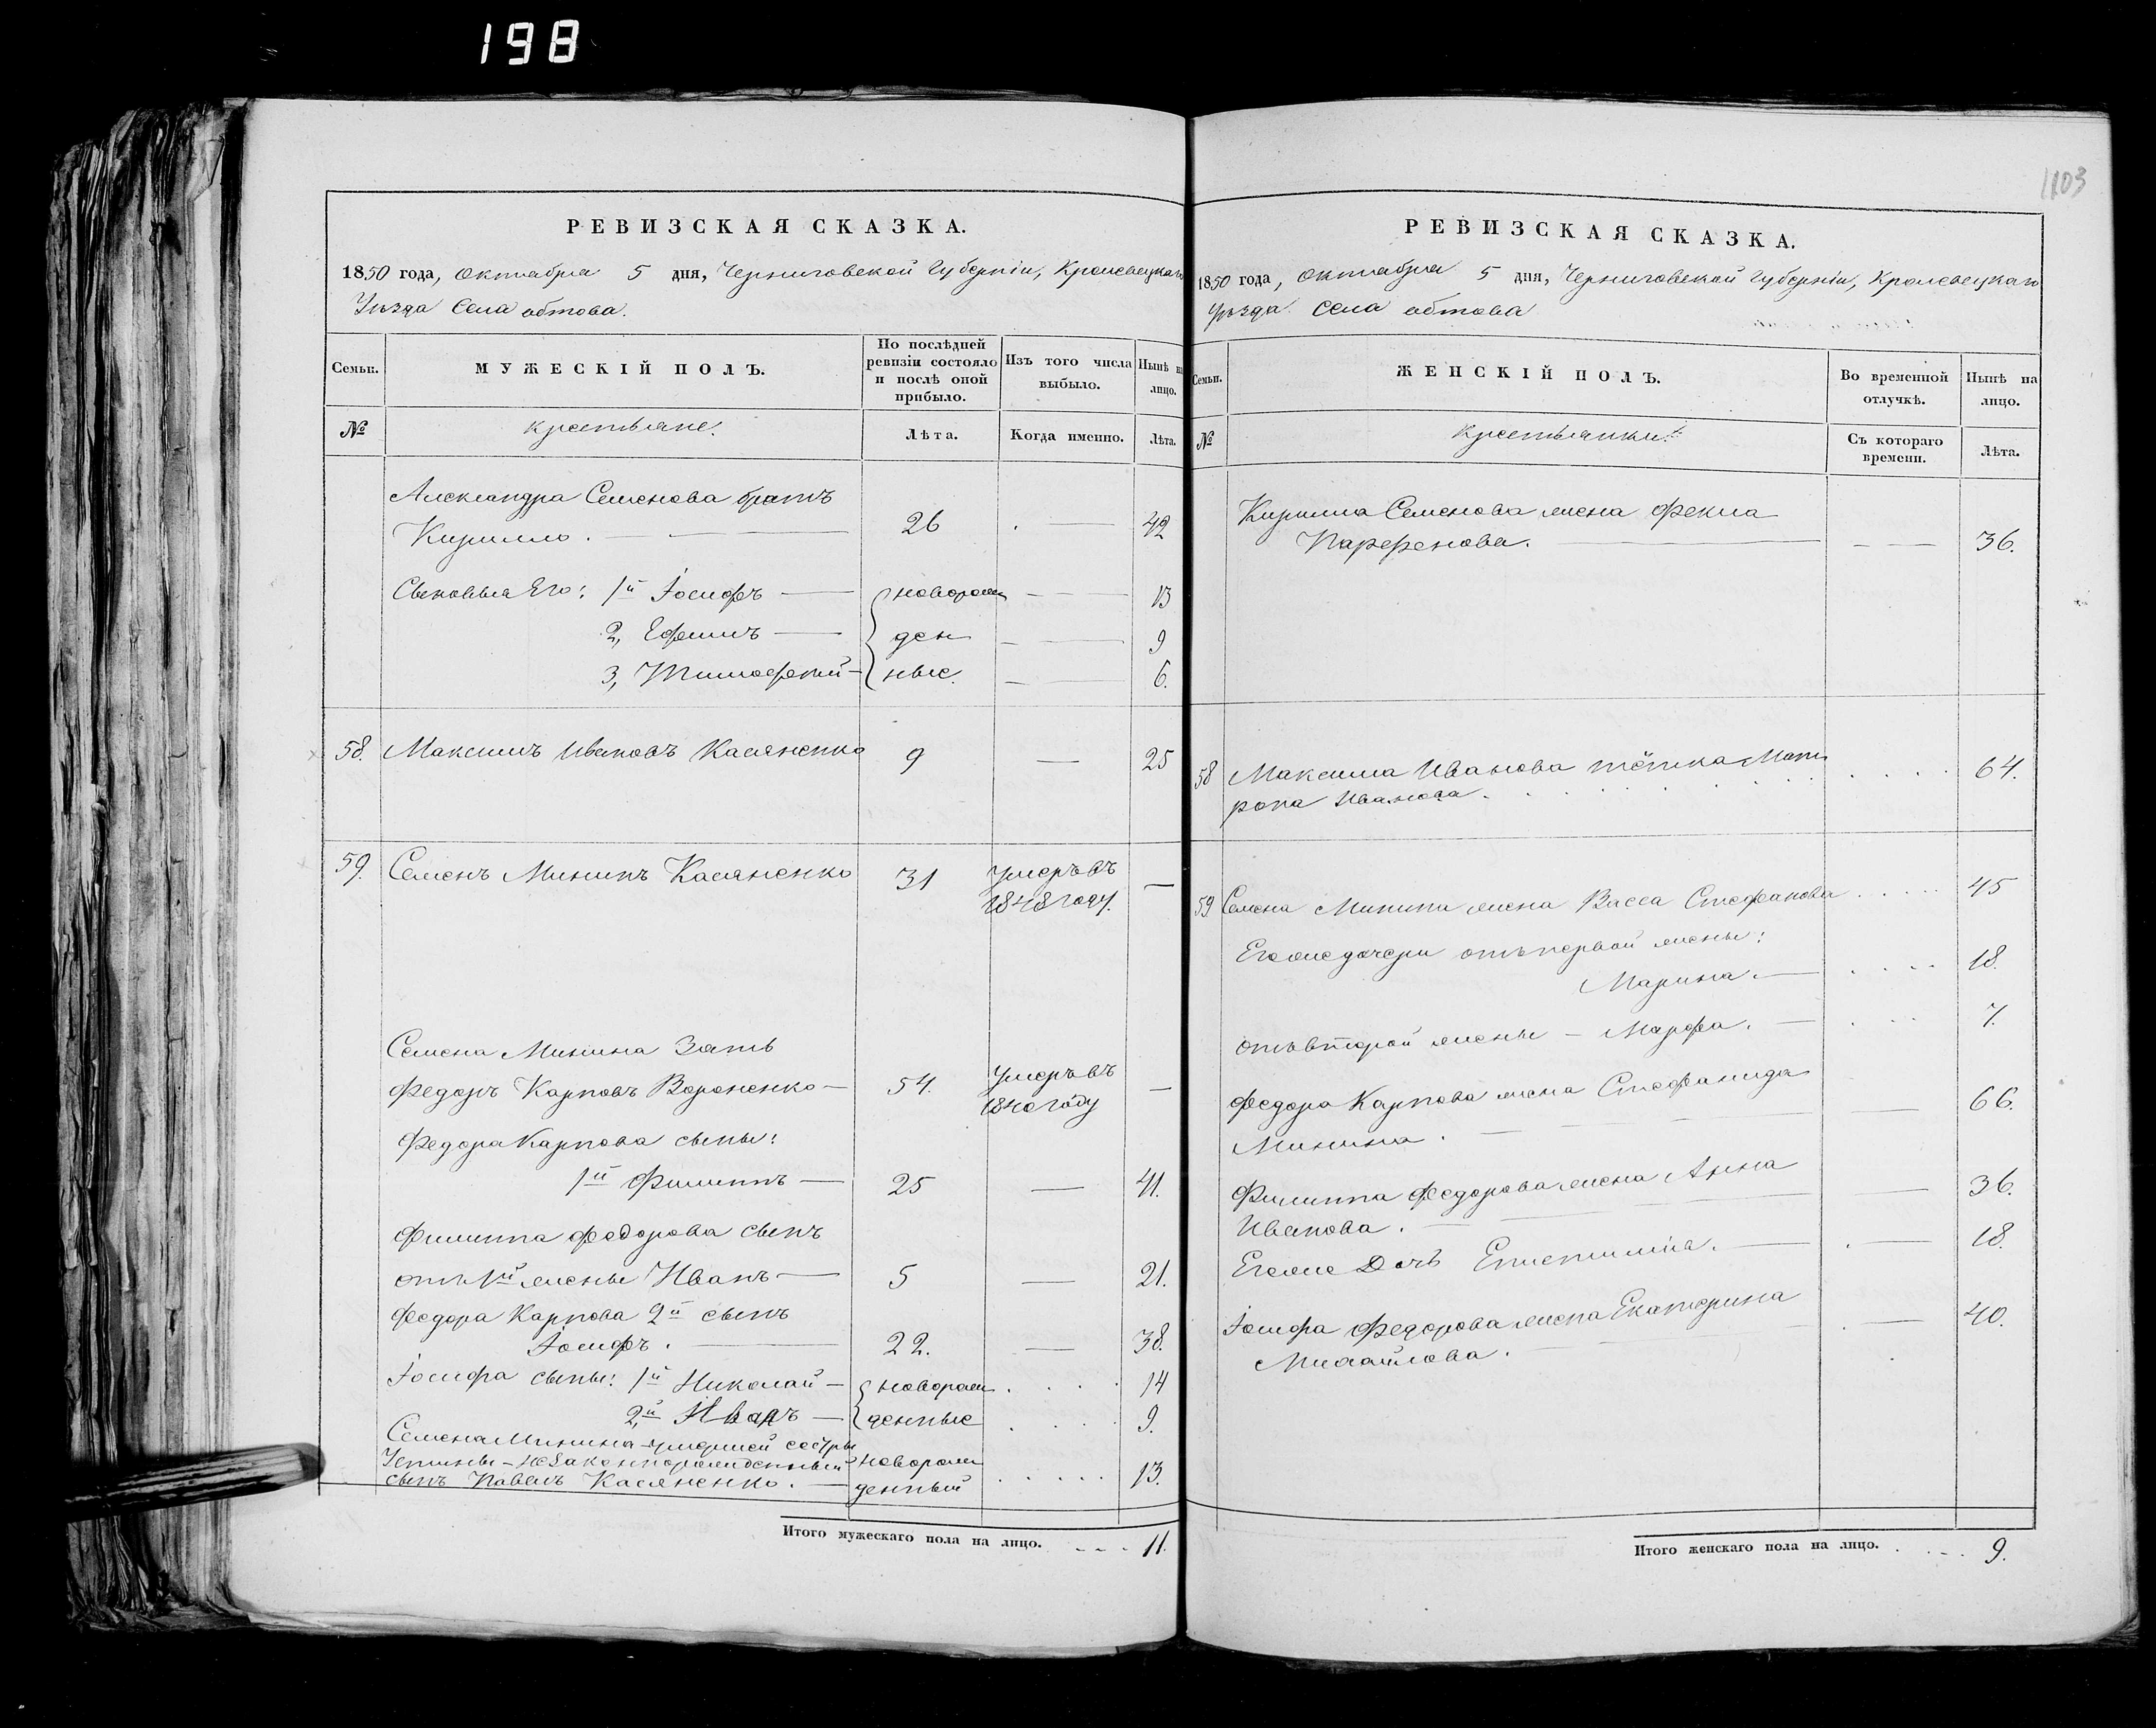 198
1103
РЕВИЗСКАЯ СКАЗКА.
1850 года, октября 5 дня, Черниговской Губерніи, Кролевецкаго
Уѣзда Села обтова.
Семьи. МУЖЕСКІЙ ПОЛЪ. По послѣдней ревизіи состояло и послѣ оной прибыло. Изъ того числа выбыло. Нынѣ на лицо.
№ крестьяне. Лѣта. Когда именно. Лѣта.
Александра Семенова братъ
Кирилло. 26 42
Сыновья Его: 1й Іосифъ новорож 13
2, Ефимъ ден 9
3, Тимофей ные. 6.
58. Максимъ Ивановъ Касяненко 9 25
59. Семенъ Мининъ Касяненко 31 Умеръ въ
1848 году.
Семена Минина Зять
Федоръ Карповъ Вороненко 54. Умеръ въ
1840 году
Федора Карпова сыны:
1й Филиппъ 25 41.
Филиппа Федорова сынъ
отъ 1й жены Иванъ 5 21.
Федора Карпова 2й сынъ
Іосифъ. 22. 38.
Іосифа сыны: 1й Николай новорож 14
2й Иванъ денные 9.
Семена Минина умершей сестры
незаконнорожденный новорож
сынъ Павелъ Касяненко. денный 13.
Итого мужескаго пола на лицо. 11.
РЕВИЗСКАЯ СКАЗКА.
1850 года, октября 5 дня, Черниговской Губерніи, Кролевецкаго
Уѣзда Села обтова
Семьи. ЖЕНСКІЙ ПОЛЪ. Во временной отлучкѣ. Нынѣ на лицо.
№ крестьянки. Съ котораго времени. Лѣта.
Кирилла Семенова жена Фекла
Парфенова. 36.
58 Максима Иванова тётка Мат
рона Иванова. 64.
59 Семена Минина жена Васса Стефанова 45
Егоже дочери отъ первой жены:
Марина. 18.
отъ второй жены – Марфа. 7.
Федора Карпова жена Стефанида
Минина. 66.
Филиппа Федорова жена Анна
Иванова. 36.
Егоже Дочь Епистиміа. 18.
Іосифа Федорова жена Екатерина
Михайлова. 40.
Итого женскаго пола на лицо. 9.